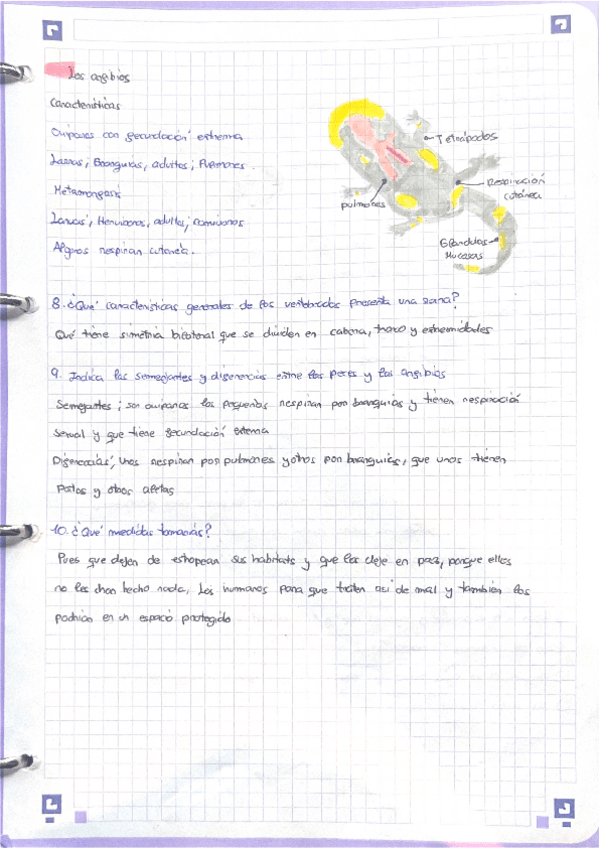 Los anfibios
Características
Ovíparos con fecundación externa
Larvas; Branquias, adultos; Pulmones.
Metamorfosis
Larvas; Hervívoros, adultos; carnívoros
Algunos respiran cutanéa.
Tetrápodos
Respiración
cutánea
pulmones
Glándulas
Mucosas
8. ¿Qué características generales de los vertebrados presenta una rana?
Qué tiene simetría bilateral que se dividen en cabeza, tronco y extremidades
9. Indica las semejantes y diferencias entre los peces y los anfibios
Semejantes; son ovíparos los pequeños respiran por branquias y tienen respiración
sexual y que tiene fecundación externa
Diferencias; Unos respiran por pulmones y otros por branquias, que unos tienen
Patas y otros aletas
10. ¿Qué medidas tomarías?
Pues que dejen de estropear sus habitats y que los deje en paz, porque ellos
no les han hecho nada, los humanos para que traten así de mal y también los
podrían en un espacio protegido